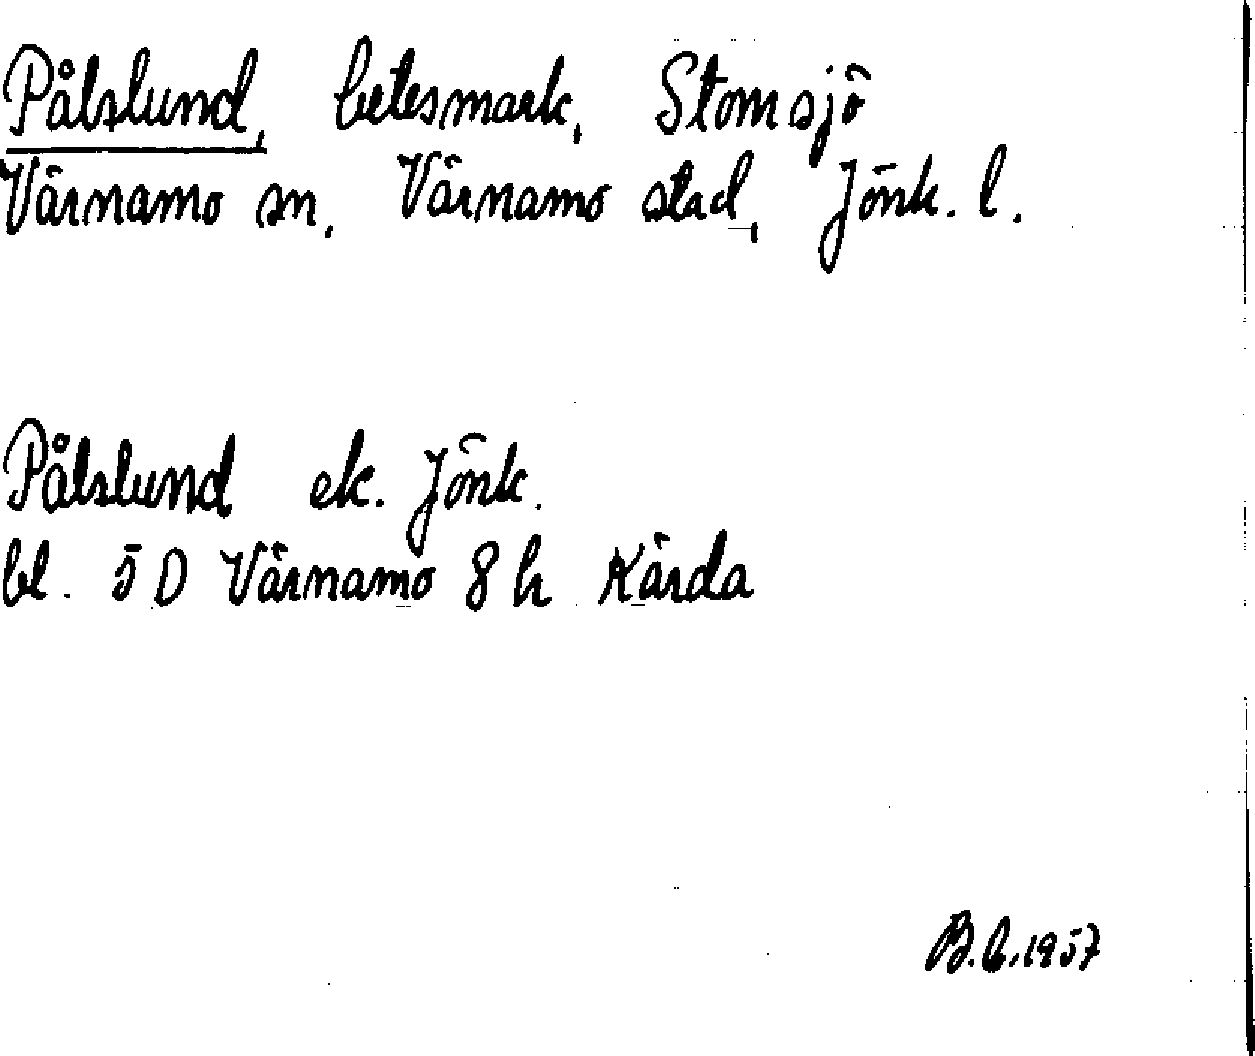 Pålslund, betesmark, Stomsjö
Värnamo sn, Värnamo stad, Jönk. l.
Pålslund ek. Jönk.
bl. 5 D Värnamo 8 h Kärda
B.L. 1957